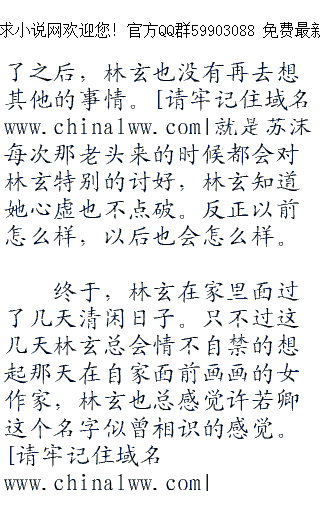 求小说网欢迎您! 官方QQ群59903088 免费最新
了之后，林玄也没有再去想
其他的事情。[请牢记住域名
www.china1ww.com|就是苏沫
每次那老头来的时候都会对
林玄特别的讨好，林玄知道
她心虚也不点破。反正以前
怎么样，以后也会怎么样。
终于，林玄在家里面过
了几天清闲日子。只不过这
几天林玄总会情不自禁的想
起那天在自家面前画画的女
作家，林玄也总感觉许若卿
这个名字似曾相识的感觉。
[请牢记住域名
www.china1ww.com|